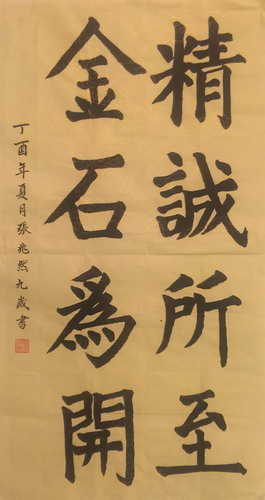 精誠所至
金石為開
丁酉年夏月張兆然九歲書